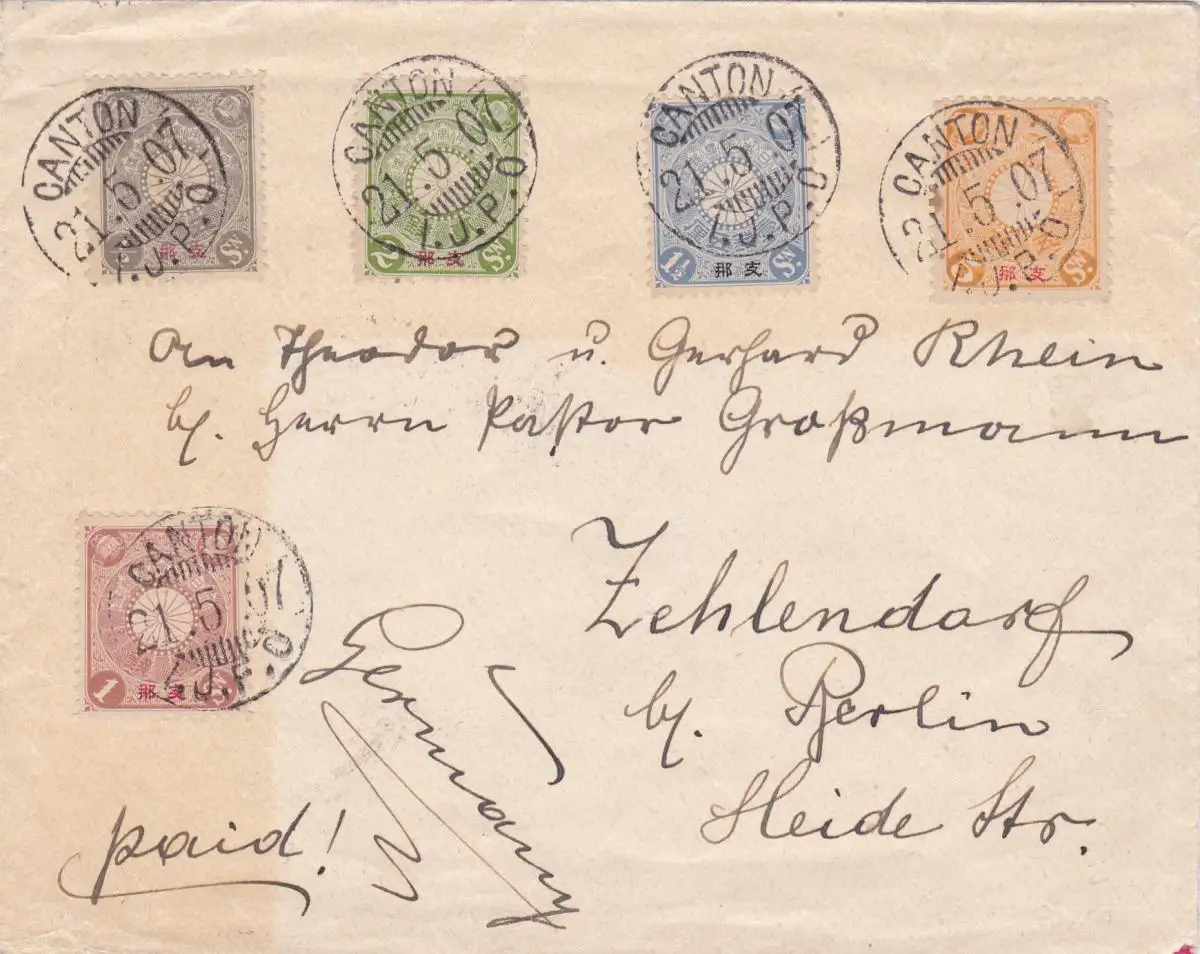 CANTON
21.5.07
I.J.P.O
支那
Sn.
CANTON
21.5.07
I.J.P.O
2
支那
Sn.
CANTON
21.5.07
I.J.P.O
1½
支那
Sn.
CANTON
21.5.07
I.J.P.O
支那
Sn.
An Theodor u. Gerhard Rhein
b/. Herrn Pastor Großmann
CANTON
21.5.07
I.J.P.O
1
支那
Sn.
Zehlendorf
b/. Berlin
Heide Str.
Germany
paid!